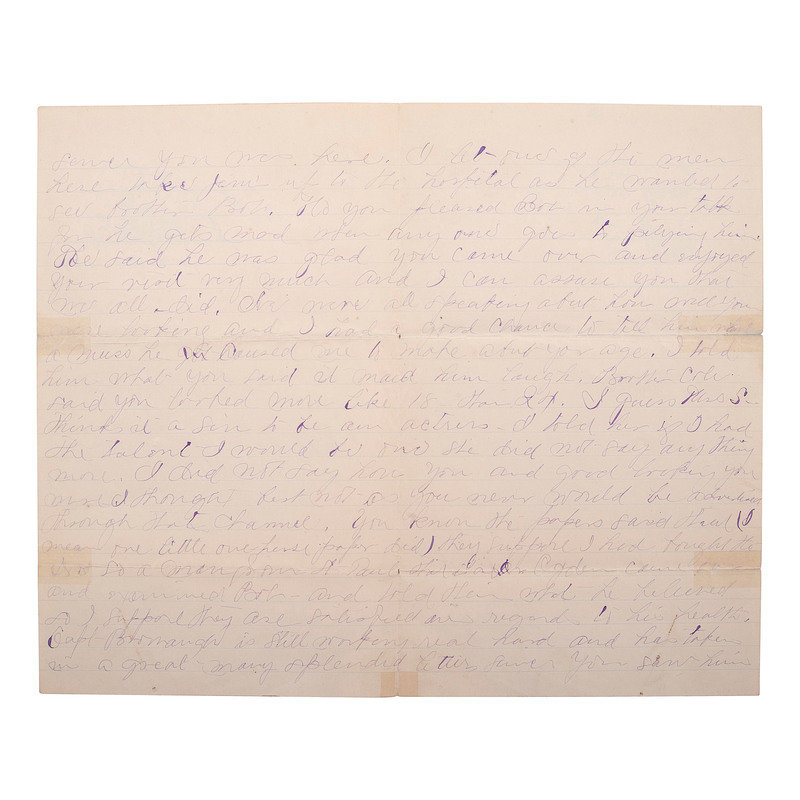 sence you was here. I let one of the men
here take Jim up to the hospital as he wanted to
see brother Bob. you pleased Bob in your talk
for he gets mad when any one goes to pitying him.
He said he was glad you came over and enjoyed
your visit very much and I can assure you that
we all did. We were all speaking about how well you
was looking and I had a good chance to tell him
a muss he caused me to make about yor age. I told
him what you said it maid him laugh. Brother Cole
said you looked more like 18 than 24. I guess Miss S.
thinks it a sin to be an actress I told her if I had
the talent I would be one she did not say any thing
more. I did not say how you and good looking you
was I thought best not as you never would be
through that channel. You know the papers said that (I
mean one little one horse paper did) they suppose I had bought the
so a man from St Paul came
and examined Bob and told them what he believed
so I suppose they are satisfied in regard to his health.
Capt Bronaugh is still working real hard and has taken
in a great many splendid letters sence you saw him